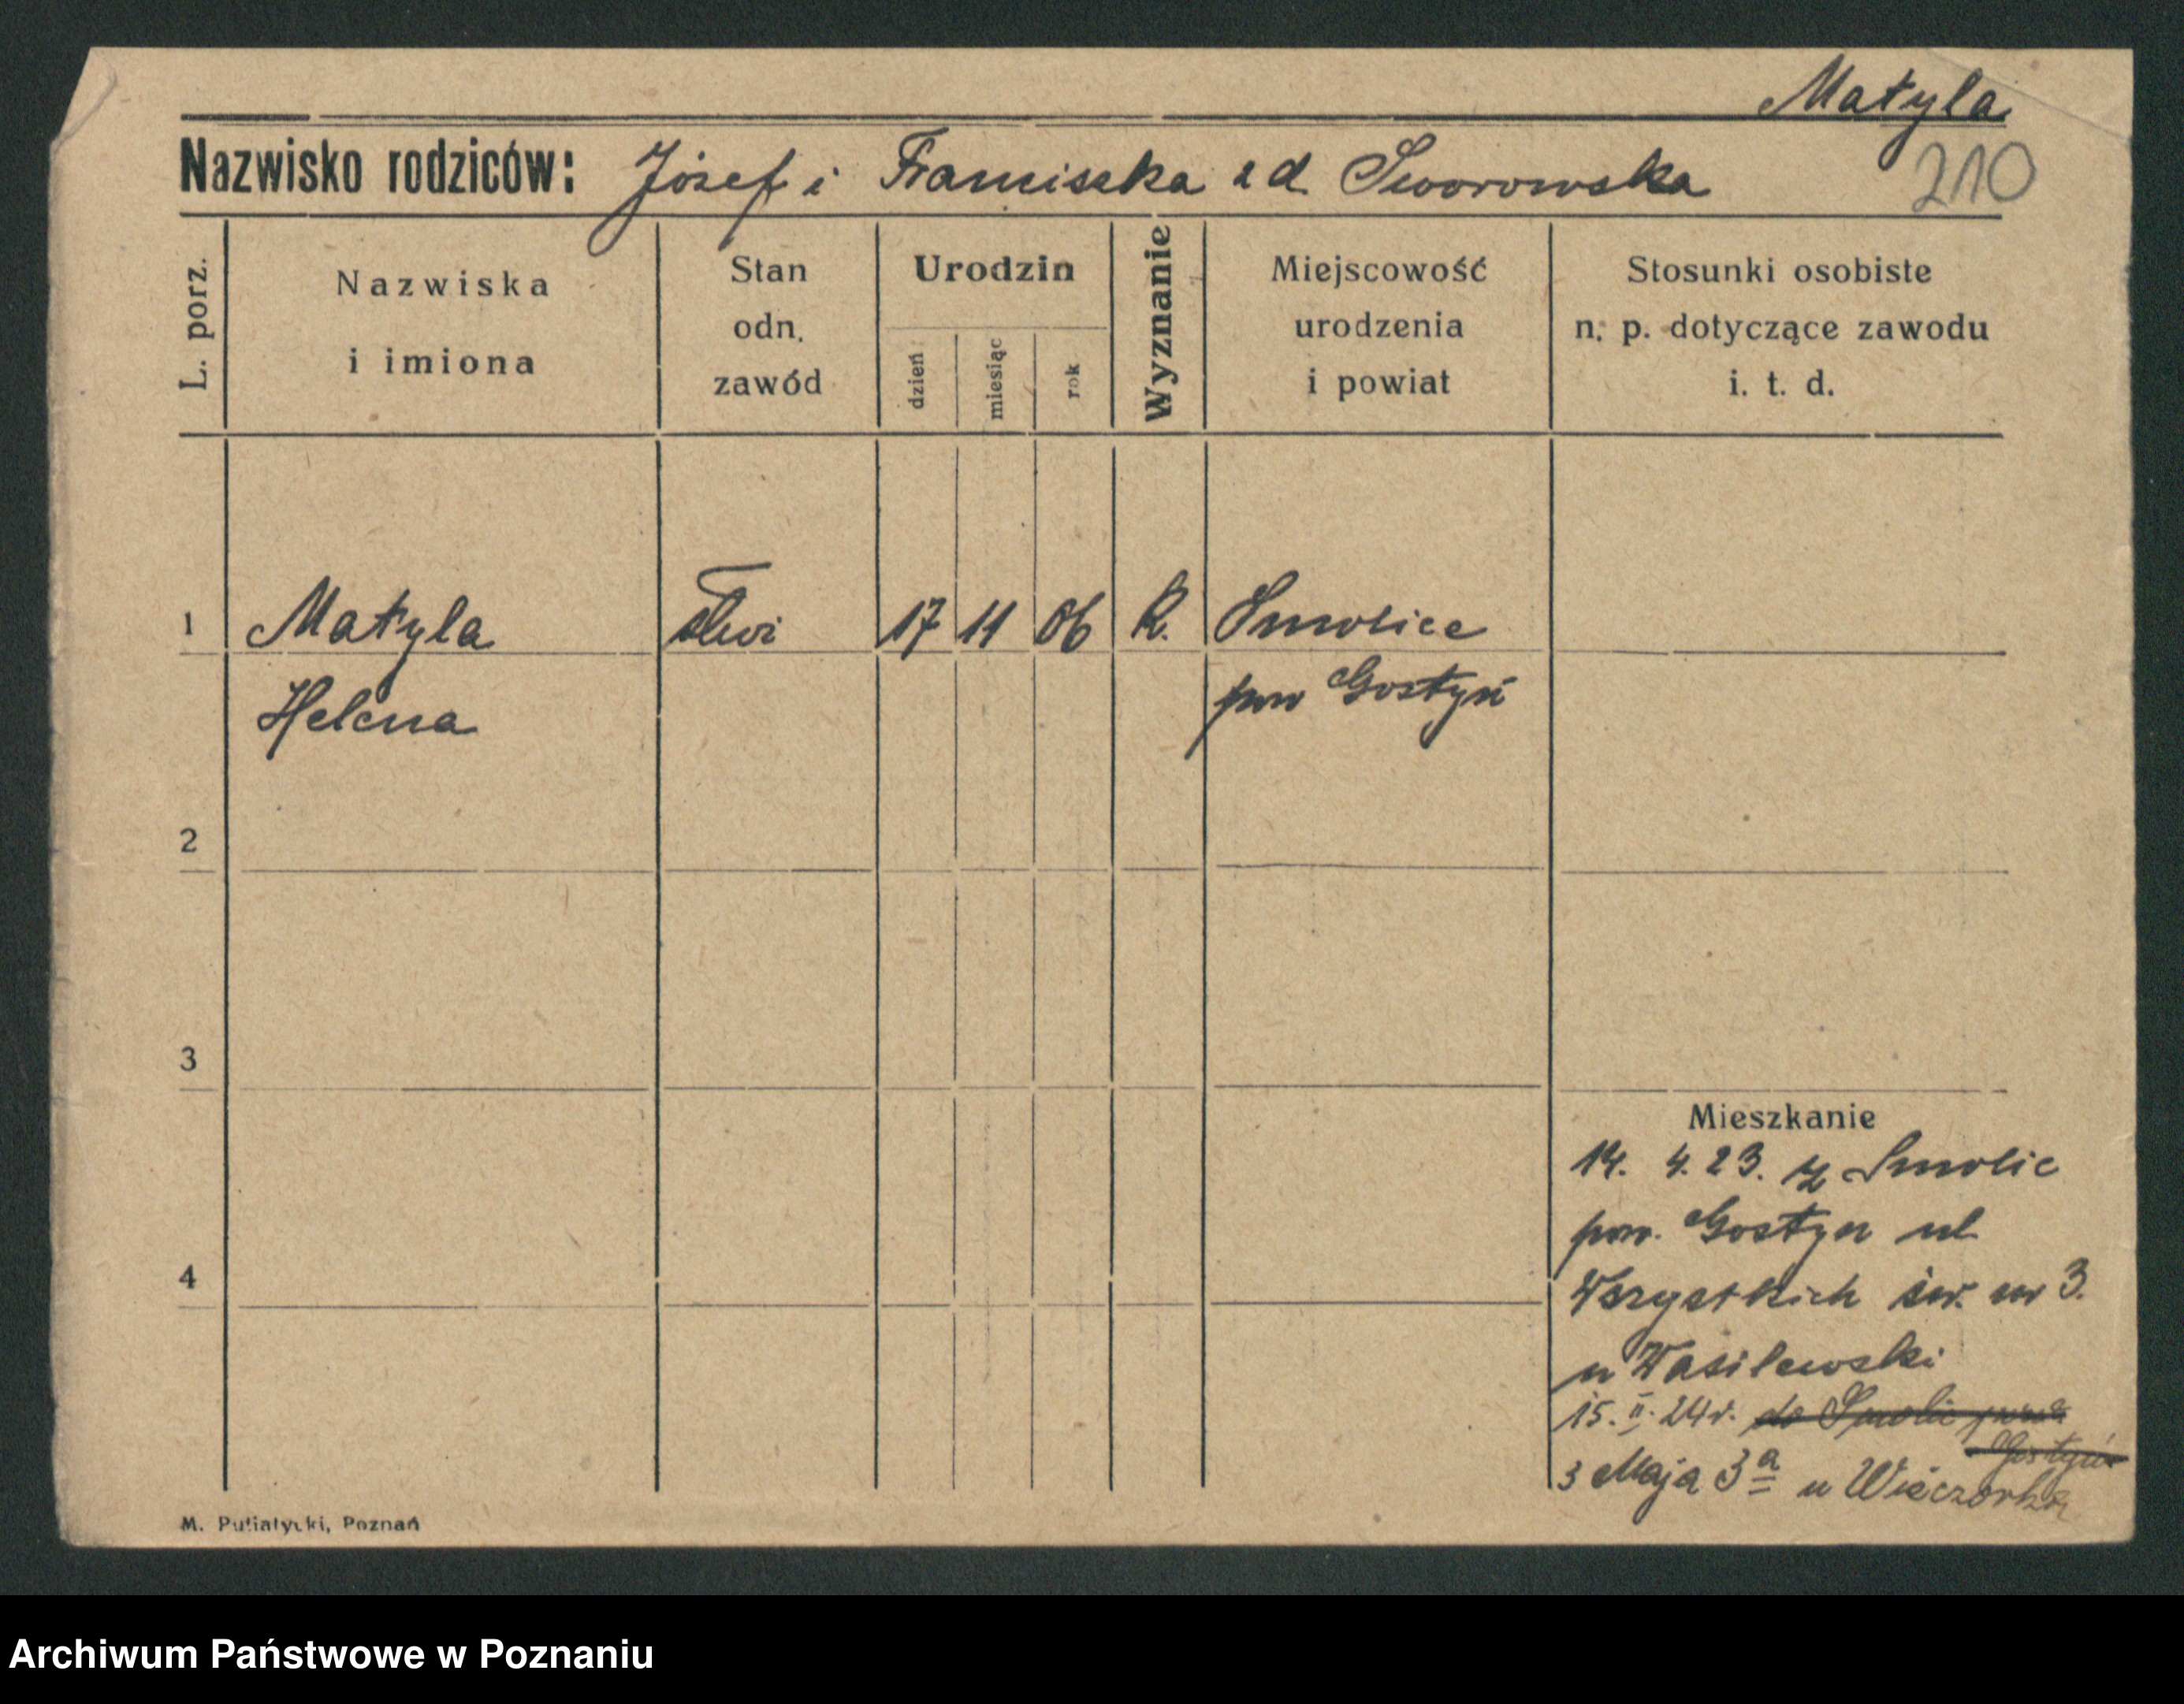 Matyla
210
Nazwisko rodziców: Józef i Franciszka zd Sworowska
L. porz.
Nazwiska
i imiona
Stan
odn.
zawód
Urodzin
dzień
miesiąc
rok
Wyznanie
Miejscowość
urodzenia
i powiat
Stosunki osobiste
n. p. dotyczące zawodu
i. t. d.
1 Matyla 17 11 06 R. Smolice
Helena pow Gostyń
2
3
Mieszkanie
14. 4. 23. z Smolic
pow. Gostyn ul
4
Wszystkich św. nr 3.
u Wasilewski
15. II. 24 r. do Smolic
Gostyń
3 Maja 3a u Wieczorka
M. Putiatycki, Poznań
Archiwum Państwowe w Poznaniu